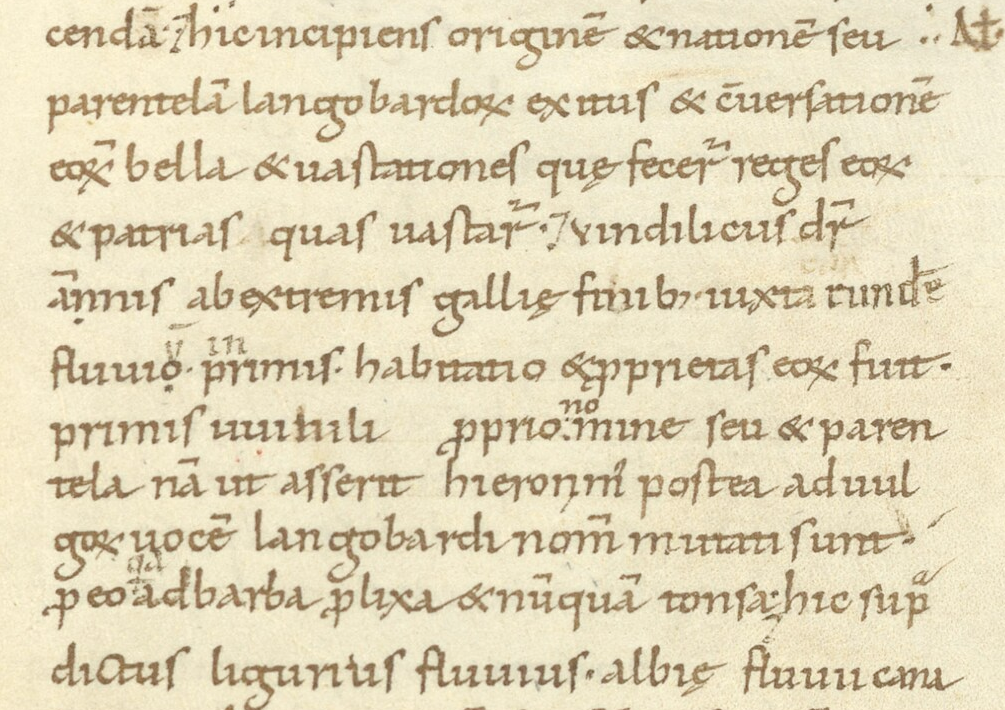 cendā; hic incipiens originē & nationē seu
parentelā langobardoꝝ exitus & c̄uersationē
eoꝝ bella & uastationes quę fecer̄ reges eoꝝ
& patrias quas uastar̄. vindilicus dr̄
ānnis ab extremis gallię finibꝫ iuxta
fluuio. primis. habitatio &ꝓprietas eoꝝ fuit.
primis uuinili ꝓprio nomine seu & paren
tela nā ut asserit hieronim postea ad uul
goꝝ uocē langobardi nom̄ mutati sunt.
ꝓ eo qd barba ꝓlixa & nūquā tonsa; hic sup̄
dictus ligurius fluuius. albię fluuii cana